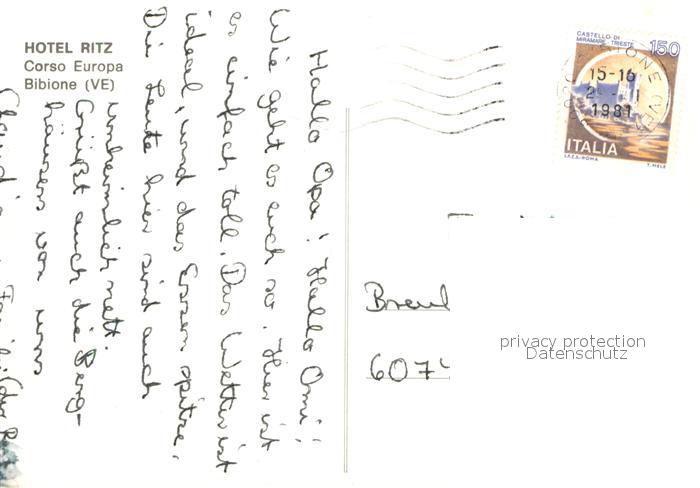 HOTEL RITZ
Corso Europa
Bibione (VE)
Hallo Opa! Hallo Omi!
Wie geht es euch so. Hier ist
es einfach toll. Das Wetter ist
ideal, und das Essen spitze.
Die Leute hier sind auch
unheimlich nett.
Grüßt auch die Berg-
häusers von uns
CASTELLO DI
MIRAMARE-TRIESTE
150
15-16
1981
ITALIA
I.P.Z.S.-ROMA
T. MELE
6074
privacy protection
Datenschutz